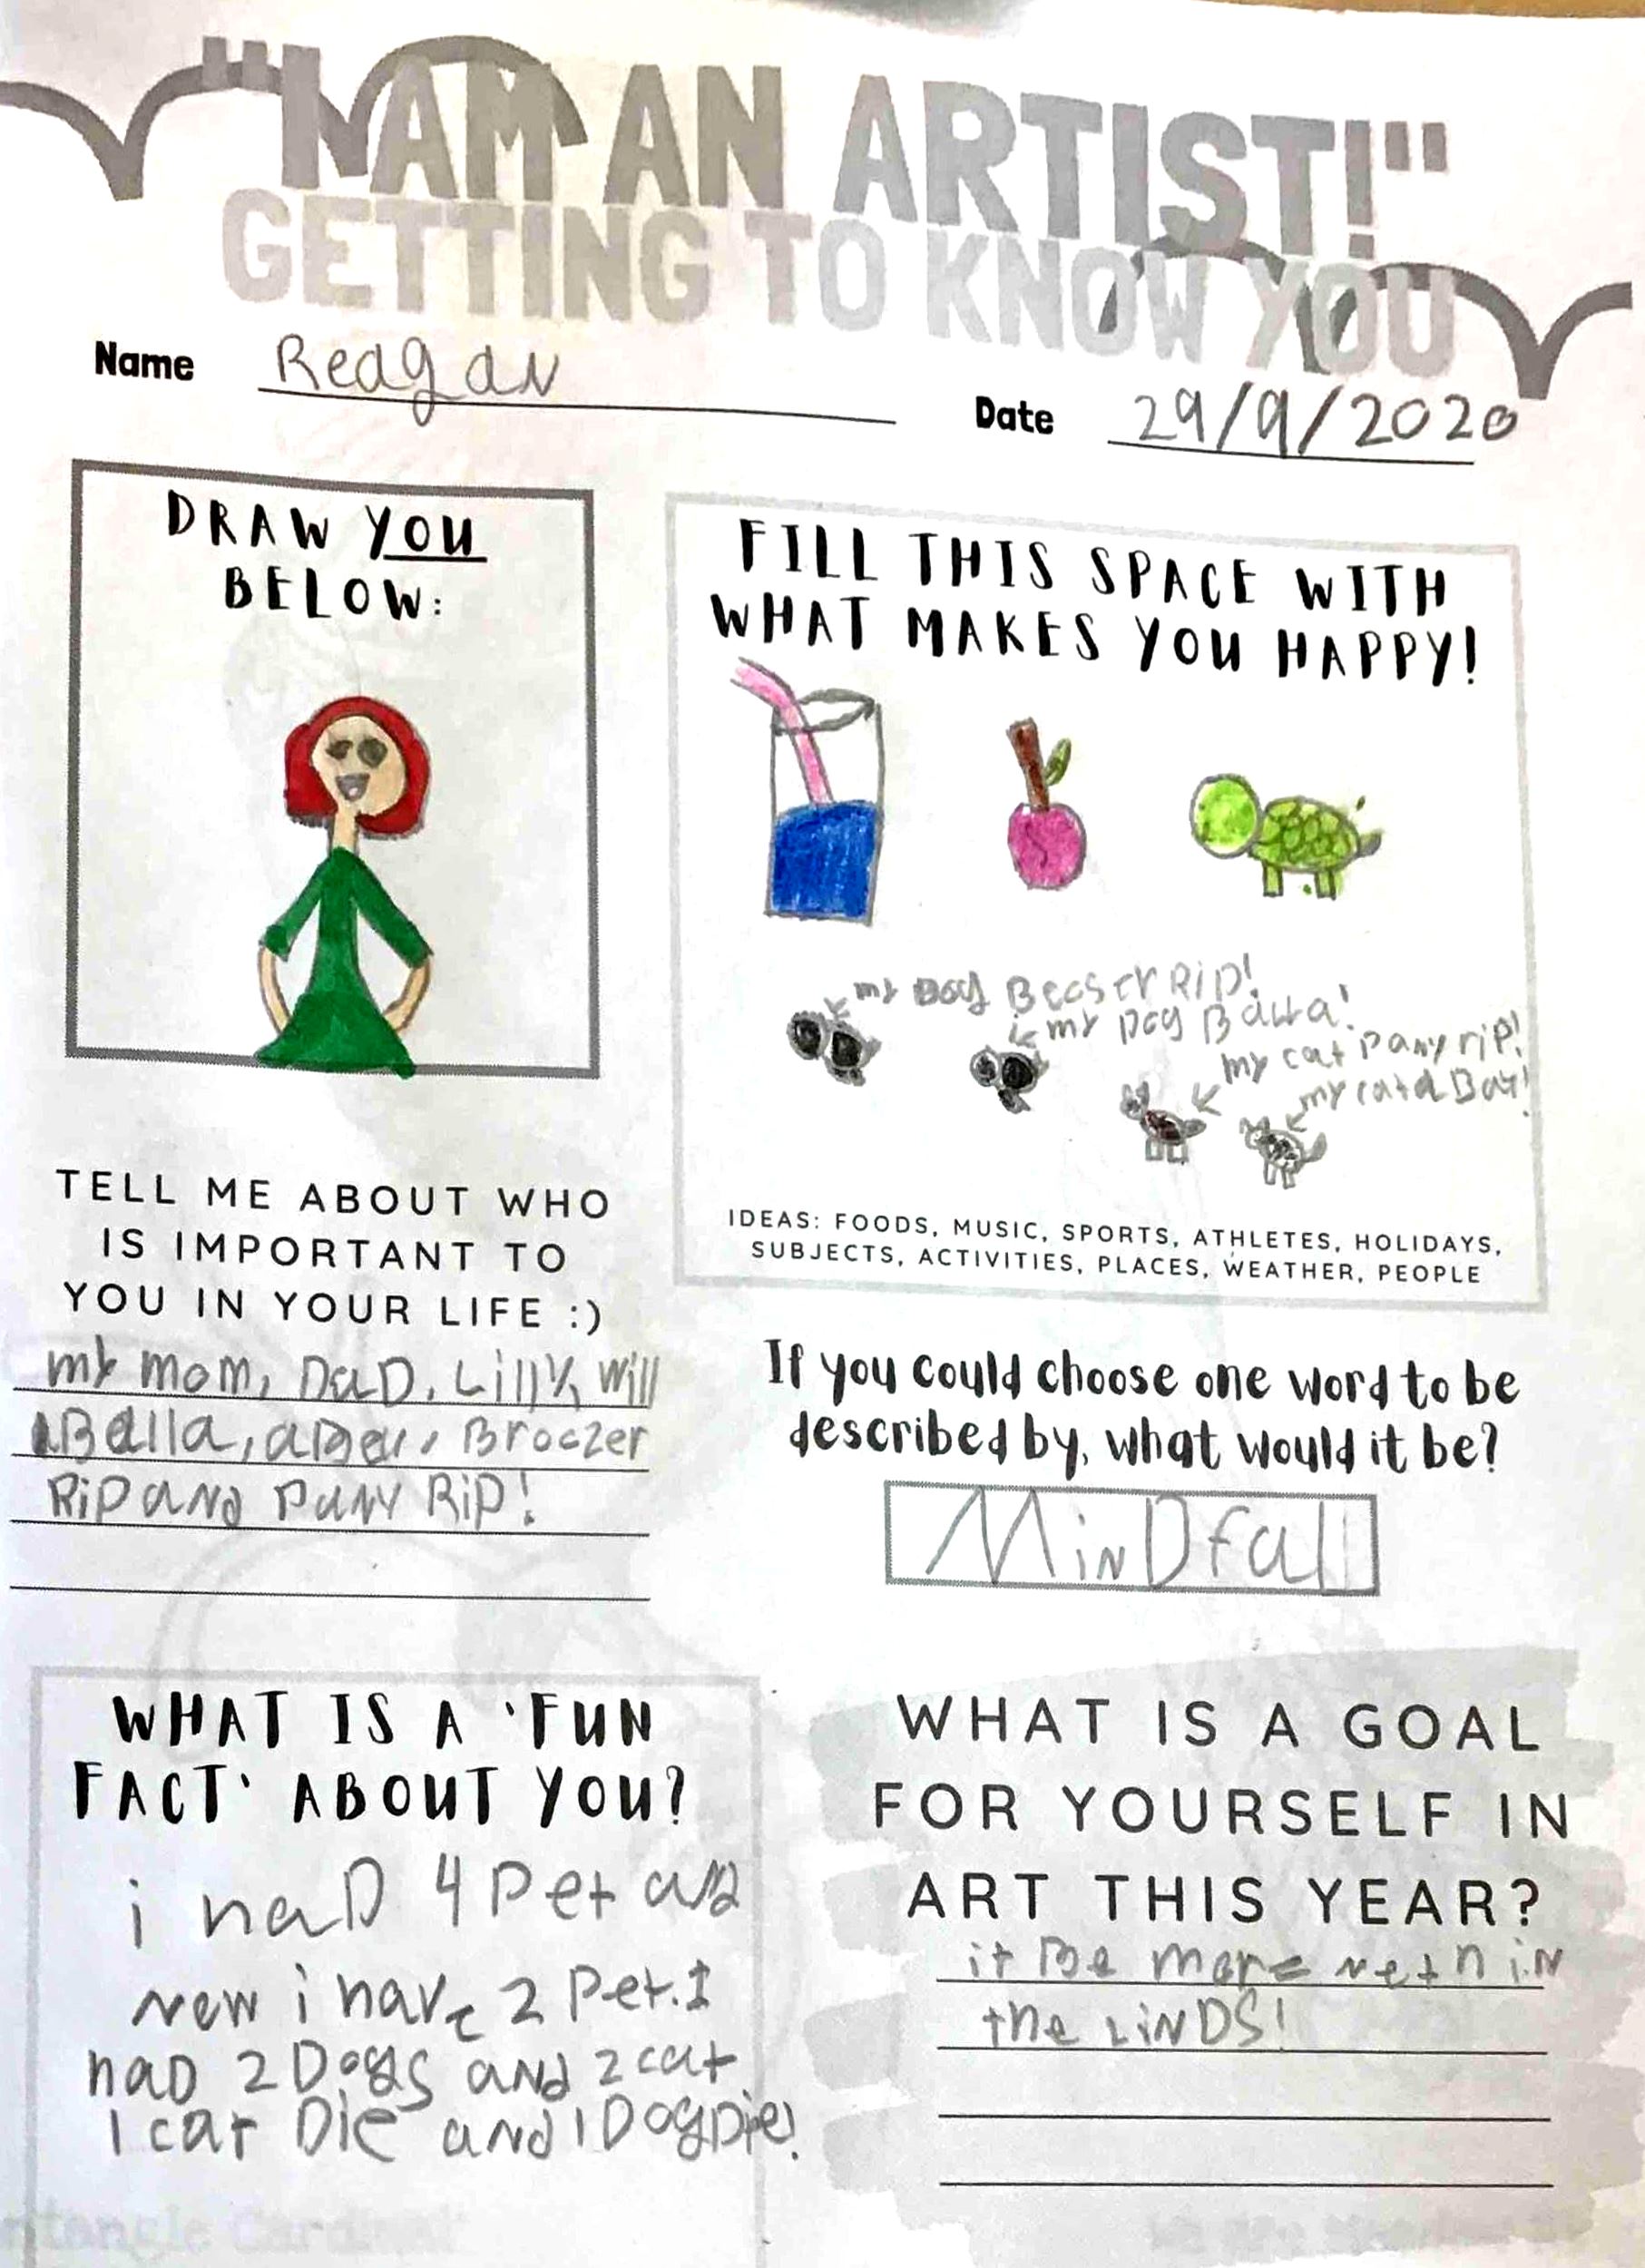 "I AM AN ARTIST!"
GETTING TO KNOW YOU
Name Reagan
Date 29/9/2020
DRAW YOU
BELOW:
FILL THIS SPACE WITH
WHAT MAKES YOU HAPPY!
my Dog RiP!
my Dog Balla!
my cat pany riP!
my cat
IDEAS: FOODS, MUSIC, SPORTS, ATHLETES, HOLIDAYS,
SUBJECTS, ACTIVITIES, PLACES, WEATHER, PEOPLE
TELL ME ABOUT WHO
IS IMPORTANT TO
YOU IN YOUR LIFE :)
my mom, DaD, Lilly, will
Balla, Broczer
RiP and Pany RiP!
If you could choose one word to be
described by, what would it be?
MiNDfall
WHAT IS A 'FUN
FACT' ABOUT YOU?
i haD 4 Pet and
New i have 2 Pet. I
haD 2 Dogs and 2 cat
1 cat Die and 1 Dog Die!
WHAT IS A GOAL
FOR YOURSELF IN
ART THIS YEAR?
it Be more in
the LiNDS!